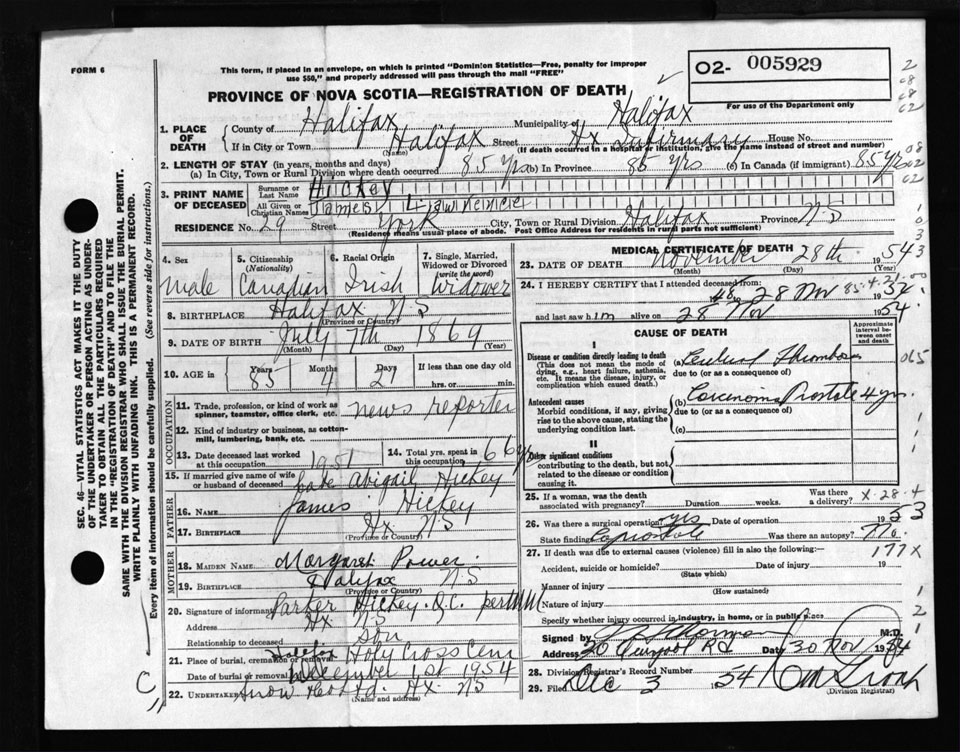 FORM 6
This form, if placed in an envelope, on which is printed "Dominion Statistics—Free, penalty for improper
use $50," and properly addressed will pass through the mail "FREE"
02- 005929
For use of the Department only
PROVINCE OF NOVA SCOTIA—REGISTRATION OF DEATH
1. PLACE OF DEATH
County of Halifax Municipality of Halifax
If in City or Town Halifax Street Hx Infirmary House No.
(Name) (If death occurred in a hospital or institution, give the name instead of street and number)
2. LENGTH OF STAY (in years, months and days)
(a) In City, Town or Rural Division where death occurred 85 yrs (b) In Province 85 yrs (c) In Canada (if immigrant) 85 yrs
3. PRINT NAME OF DECEASED
Surname or Last Name Hickey
All Given or Christian Names James Lawrence
RESIDENCE No. 29 Street York City, Town or Rural Division Halifax Province N-S
(Residence means usual place of abode. Post Office Address for residents in rural parts not sufficient)
4. Sex 5. Citizenship (Nationality) 6. Racial Origin 7. Single, Married, Widowed or Divorced (write the word)
Male Canadian Irish Widower
8. BIRTHPLACE Halifax N-S
(Province or Country)
9. DATE OF BIRTH July 7th 1869
(Month) (Day) (Year)
10. AGE in Years Months Days If less than one day old
85 4 21 hrs. or min.
OCCUPATION
11. Trade, profession, or kind of work as spinner, teamster, office clerk, etc. news reporter
12. Kind of industry or business, as cotton-mill, lumbering, bank, etc.
13. Date deceased last worked at this occupation 1951
14. Total yrs. spent in this occupation 66 yrs
15. If married give name of wife or husband of deceased late Abigail Hickey
FATHER
16. Name James Hickey
17. Birthplace Hx N-S
(Province or Country)
MOTHER
18. Maiden Name Margaret Power
19. Birthplace Halifax N-S
(Province or Country)
20. Signature of informant Parker Hickey. Q.C. per
Address Hx N-S
Relationship to deceased son
21. Place of burial, cremation or removal Halifax Holy Cross Cem
Date of burial or removal December 1st 1954
22. Undertaker Snow Hx. N-S
(Name and address)
MEDICAL CERTIFICATE OF DEATH
23. DATE OF DEATH November 28th 1954
(Month) (Day)
24. I HEREBY CERTIFY that I attended deceased from:
to 28 Nov
and last saw him alive on 28 Nov 1954.
CAUSE OF DEATH
Approximate interval between onset and death
I
Disease or condition directly leading to death (This does not mean the mode of dying, e.g., heart failure, asthenia, etc. It means the disease, injury, or complication which caused death.)
(a) Cerebral Thrombosis
due to (or as a consequence of)
Antecedent causes
Morbid conditions, if any, giving rise to the above cause, stating the underlying condition last.
(b) Carcinoma Prostate 4 yrs.
due to (or as a consequence of)
(c)
II
Other significant conditions contributing to the death, but not related to the disease or condition causing it.
25. If a woman, was the death associated with pregnancy? Duration weeks. Was there a delivery?
X-28-4
26. Was there a surgical operation? yes Date of operation 1953
State finding Ca prostate Was there an autopsy? No.
27. If death was due to external causes (violence) fill in also the following:—
177X
Accident, suicide or homicide? Date of injury 19
(State which)
Manner of injury
(How sustained)
Nature of injury
Specify whether injury occurred in industry, in home, or in public place
Signed by M.D.
Address 36 Rd Date 30 Nov 1954
28. Division Registrar's Record Number
29. Filed Dec 3 1954
(Division Registrar)
SEC. 46—VITAL STATISTICS ACT MAKES IT THE DUTY
OF THE UNDERTAKER OR PERSON ACTING AS UNDER-
TAKER TO OBTAIN ALL THE PARTICULARS REQUIRED
IN THE "REGISTRATION OF DEATH" AND TO FILE THE
SAME WITH THE DIVISION REGISTRAR WHO SHALL ISSUE THE BURIAL PERMIT.
WRITE PLAINLY WITH UNFADING INK. THIS IS A PERMANENT RECORD.
Every item of information should be carefully supplied. (See reverse side for instructions.)